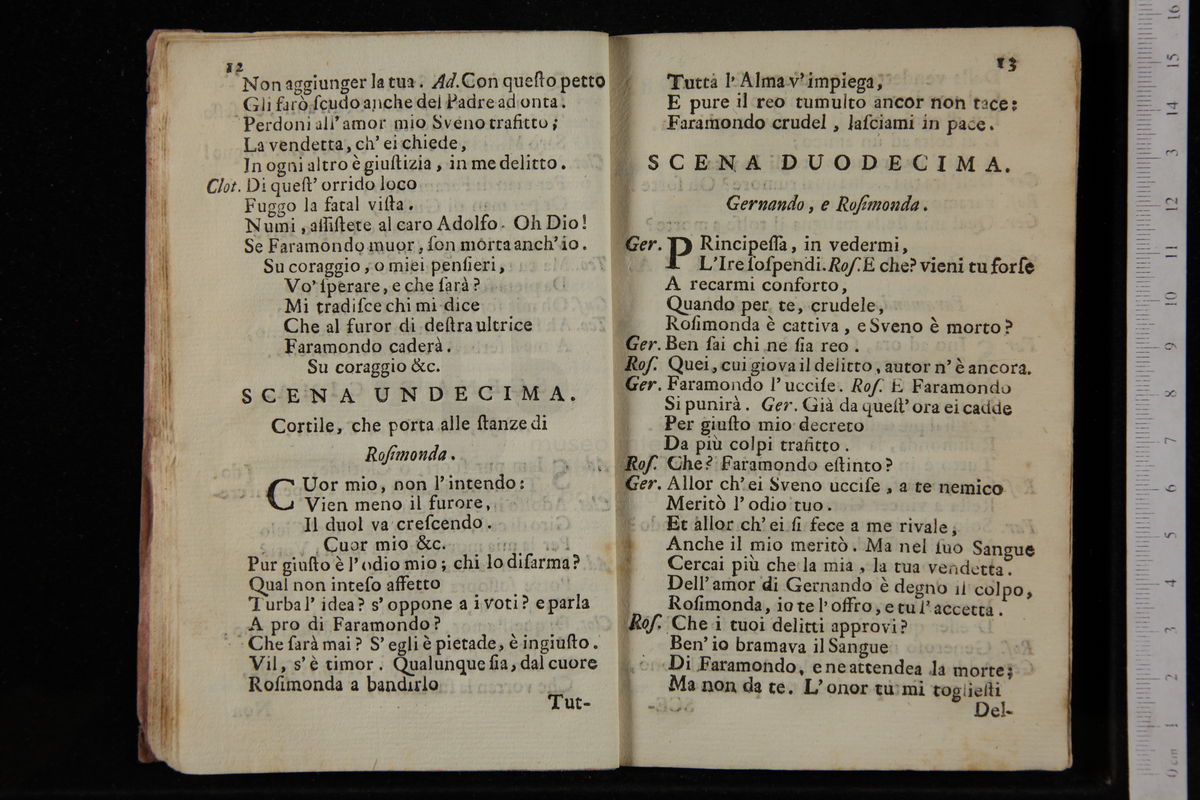 12
Non aggiunger la tua. Ad. Con queſto petto
Gli farò ſcudo anche del Padre ad onta.
Perdoni all' amor mio Sveno trafitto;
La vendetta, ch' ei chiede,
In ogni altro è giuſtizia, in me delitto.
Clot. Di queſt' orrido loco
Fuggo la fatal viſta.
Numi, aſſiſtete al caro Adolfo. Oh Dio!
Se Faramondo muor, ſon morta anch' io.
Su coraggio, o miei penſieri,
Vo' ſperare, e che ſarà?
Mi tradiſce chi mi dice
Che al furor di deſtra ultrice
Faramondo caderà.
Su coraggio &c.
SCENA UNDECIMA.
Cortile, che porta alle ſtanze di
Roſimonda.
CUor mio, non l' intendo:
Vien meno il furore,
Il duol va creſcendo.
Cuor mio &c.
Pur giuſto è l' odio mio; chi lo diſarma?
Qual non inteſo affetto
Turba l' idea? s' oppone a i voti? e parla
A pro di Faramondo?
Che ſarà mai? S' egli è pietade, è ingiuſto.
Vil, s' è timor. Qualunque ſia, dal cuore
Roſimonda a bandirlo
Tut-
13
Tutta l' Alma v' impiega,
E pure il reo tumulto ancor non tace:
Faramondo crudel, laſciami in pace.
SCENA DUODECIMA.
Gernando, e Roſimonda.
Ger. PRincipeſſa, in vedermi,
L' Ire ſoſpendi. Roſ. E che? vieni tu forſe
A recarmi conforto,
Quando per te, crudele,
Roſimonda è cattiva, e Sveno è morto?
Ger. Ben ſai chi ne ſia reo.
Roſ. Quei, cui giova il delitto, autor n' è ancora.
Ger. Faramondo l' ucciſe. Roſ. E Faramondo
Si punirà. Ger. Già da queſt' ora ei cadde
Per giuſto mio decreto
Da più colpi trafitto.
Roſ. Che? Faramondo eſtinto?
Ger. Allor ch' ei Sveno ucciſe, a te nemico
Meritò l' odio tuo.
Et allor ch' ei ſi fece a me rivale,
Anche il mio meritò. Ma nel ſuo Sangue
Cercai più che la mia, la tua vendetta.
Dell' amor di Gernando è degno il colpo,
Roſimonda, io te l' offro, e tu l' accetta.
Roſ. Che i tuoi delitti approvi?
Ben' io bramava il Sangue
Di Faramondo, e ne attendea la morte;
Ma non da te. L' onor tu mi toglieſti
Del-
0 cm 1 2 3 4 5 6 7 8 9 10 11 12 3 14 15 16